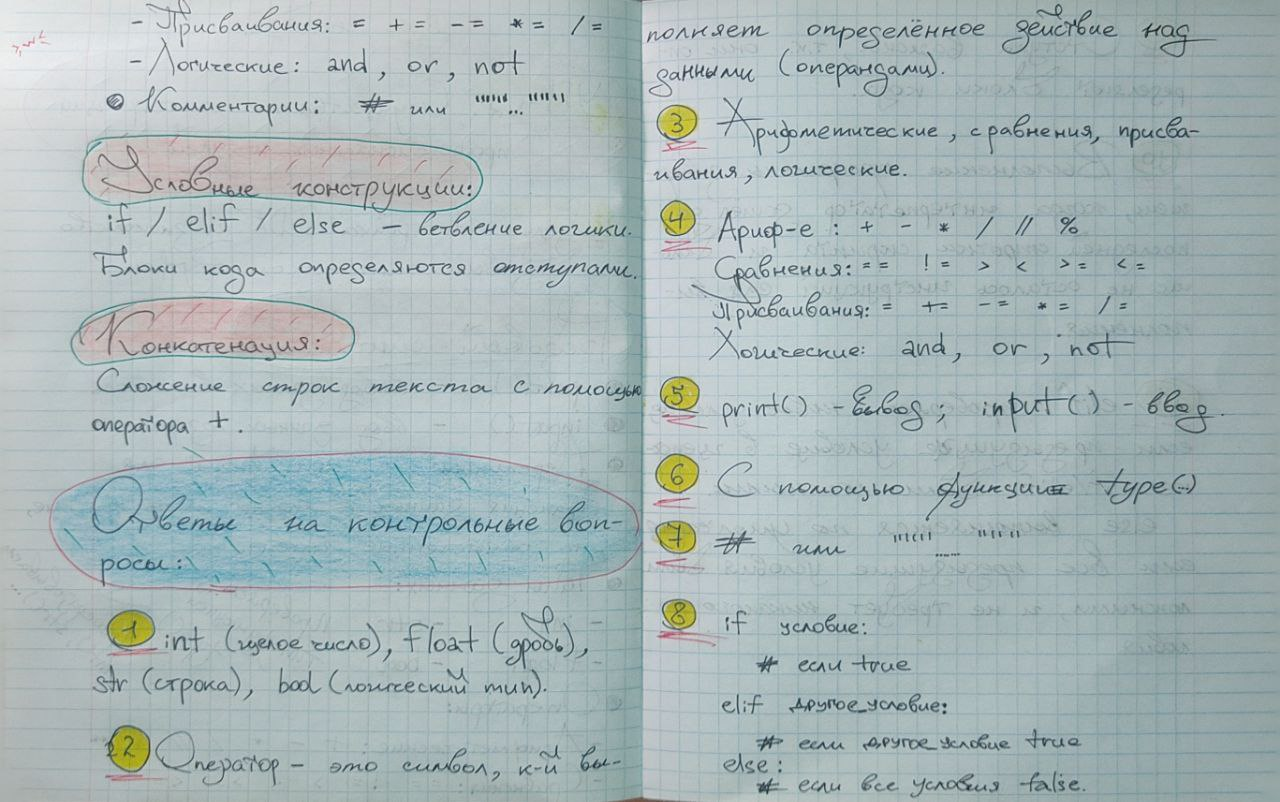 - Присваивания: = += -= *= /=
- Логические: and, or, not
Комментарии: # или """...."""
Условные конструкции:
if / elif / else - ветвление логики.
Блоки кода определяются отступами.
Конкатенация:
Сложение строк текста с помощью
оператора +.
Ответы на контрольные воп-
росы:
1 int (целое число), float (дробь),
str (строка), bool (логический тип).
2 Оператор - это символ, к-й вы-
полняет определённое действие над
данными (операндами).
3 Арифметические, сравнения, присва-
ивания, логические.
4 Ариф-е: + - * / // %
Сравнения: == != > < >= <=
Присваивания: = += -= *= /=
Логические: and, or, not
5 print() - вывод; input() - ввод.
6 С помощью функции type(..)
7 # или """......"""
8 if условие:
# если true
elif другое_условие:
# если другое_условие true
else:
# если все условия false.